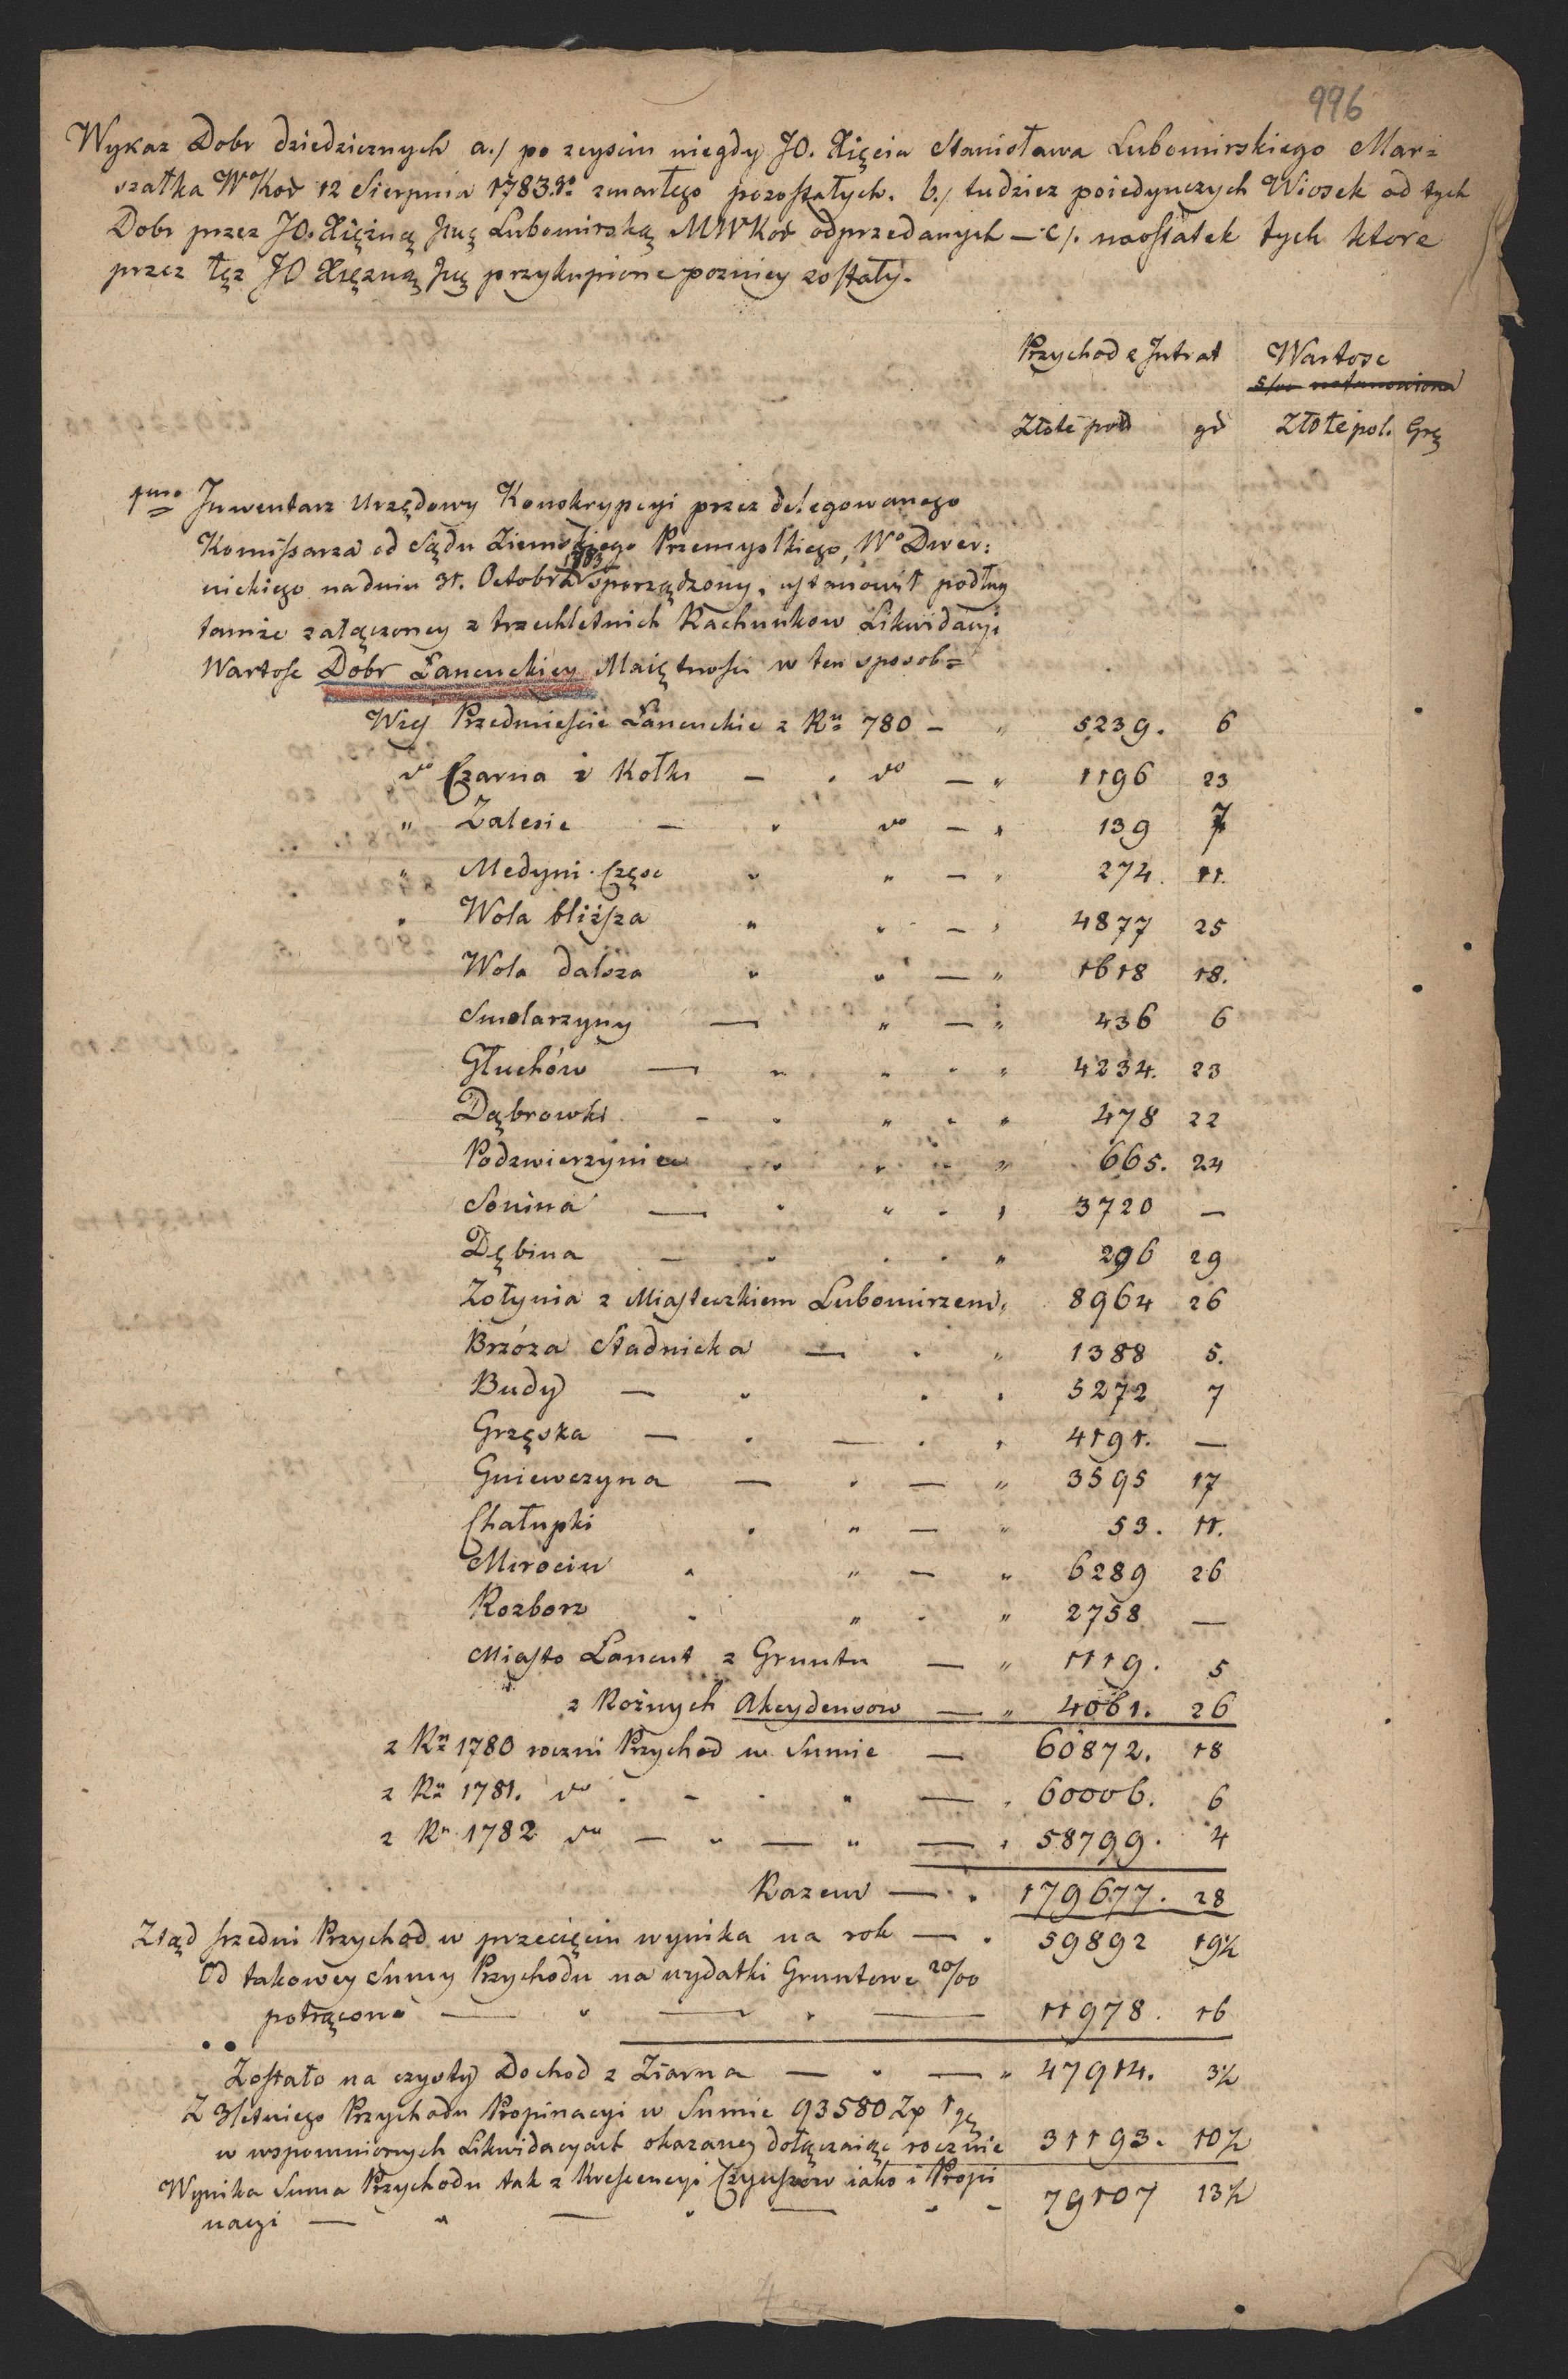 996
Wykaz Dobr dziedzicznych a./ po zeysciu niegdy JO. Xięcia Stanisława Lubomirskiego Mar=
szałka WKor 12 Sierpnia 1783. zmarłego pozostałych. b./ tudziez poiedynczych Wiosek od tych
Dobr przez JO. Xiężnę Lubomirską MWKor odprzedanych — c/. naostatek tych ktore
przez tęż JO Xiężnę przykupione pozniey zostały.
Przychod z Intrat Wartosc
Złote pol gr Złote pol. Grz
1mo Inwentarz Urzędowy Konskrypcyi przez delegowanego
Komissarza od Sądu Ziemskiego Przemyslkiego, Wo Dwer:
nickiego na dniu 31. Octobra 1783 sporządzony, ustanowił podług
tamże załączoney z trzechletnich Rachunkow Likwidacyi
Wartosc Dobr Łancuckiey Maiętnosci w ten sposob=
Wieś Przedmiescie Łancuckie z Ru 780 — " 5239. 6
do Czarna i Kotki — . do — " 1196 23
" Zalesie — " do — " 139 7
" Medyni Częsc " " — " 274. 11.
" Wola bliższa " " — " 4877 25
Wola dalsza " " — " 1618 18.
Smolarzyny — " — " 436 6
Głuchów — " " " " 4234. 23
Dąbrowki - " " " " 478 22
Podzwierzyniec " " " " 665. 24
Sonina — " " - " 3720 —
Dębina — " . . " 296 29
Żołynia z Miasteczkiem Lubomirzem " 8964 26
Brzóza Stadnicka — . " 1388 5.
Budy — " . " 5272 7
Grzęska — . — . " 4191. —
Gniewczyna — . — " 3595 17
Chałupki . " — " 53. 11.
Mirocin . " — " 6289 26
Rozborz . " . " 2758 —
Miasto Lancut z Gruntu — " 1119. 5
z Rożnych Akcydensow — " 4061. 26
z Ru 1780 roczni Przychod w Sumie — 60872. 18
z Ru 1781. do . - . " — . 60006. 6
z Ru 1782 do — " — " — . 58799. 4
Razem — . 179677. 28
Ztąd srzedni Przychod w przecięciu wynika na rok — . 59892 19½
Od takowey Sumy Przychodu na wydatki Gruntowe 20/00
potrącono — " — . — 11978. 16
Zostało na czysty Dochod z Ziarna — " — " 47914. 3½
Z 3letniego Przychodu Propinacyi w Sumie 93580 Zp 1 gr
w wspomnionych Likwidacyach okazaney dołączaiąc rocznie 31193. 10½
Wynika Suma Przychodu tak z Krescencyi Czynszow iako i Propi
nacyi — " — " — " - 79107 13½